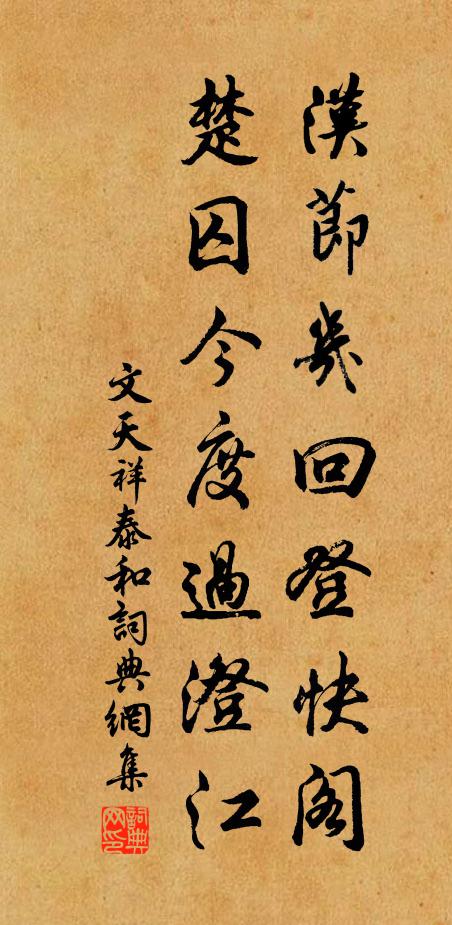 漢節幾回登快阁
楚囚今度過澄江
文天祥泰和詞典網集
詞典网印